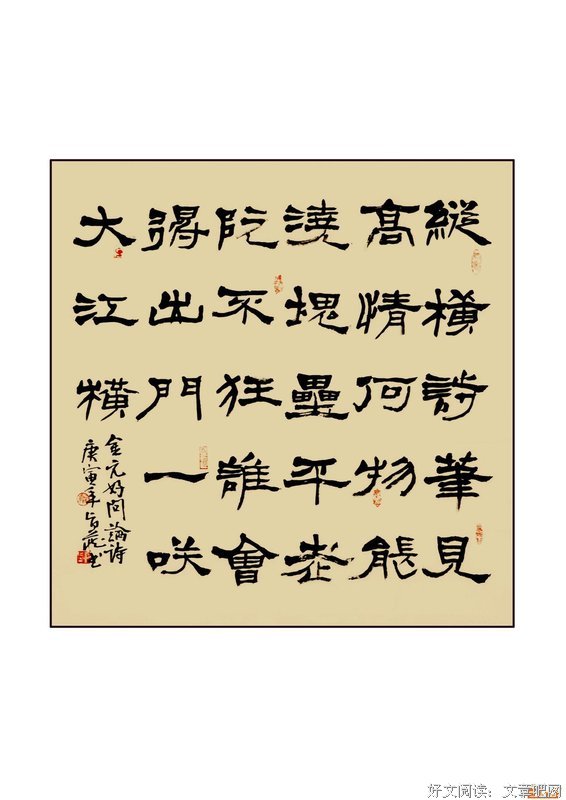 縱橫詩筆見
高情何物能
澆塊壘平老
阮不狂誰會
得出門一笑
大江橫
金元好問論詩
庚寅年
好文阅读：文章吧网